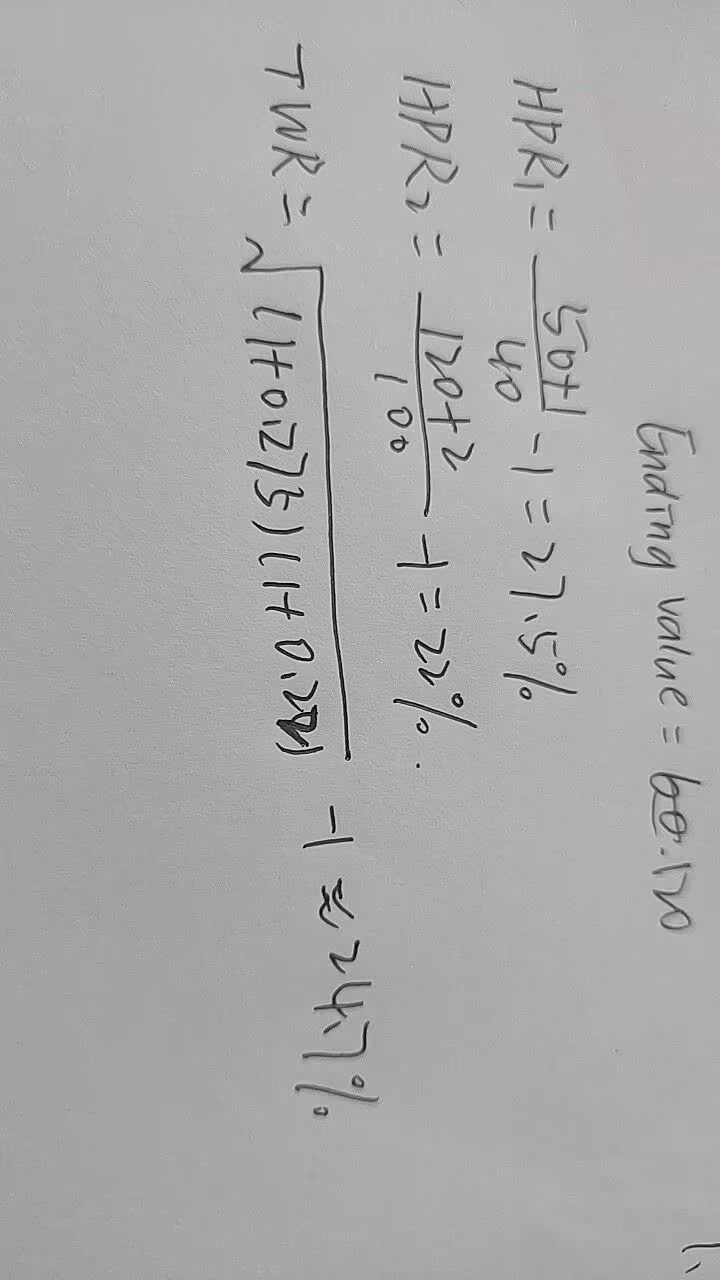 Ending value = 60.120
HPR₁ = (50+1)/40 - 1 = 27.5%
HPR₂ = (120+2)/100 - 1 = 22%.
TWR = √((1+0.275)(1+0.22)) - 1 ≈ 24.7%